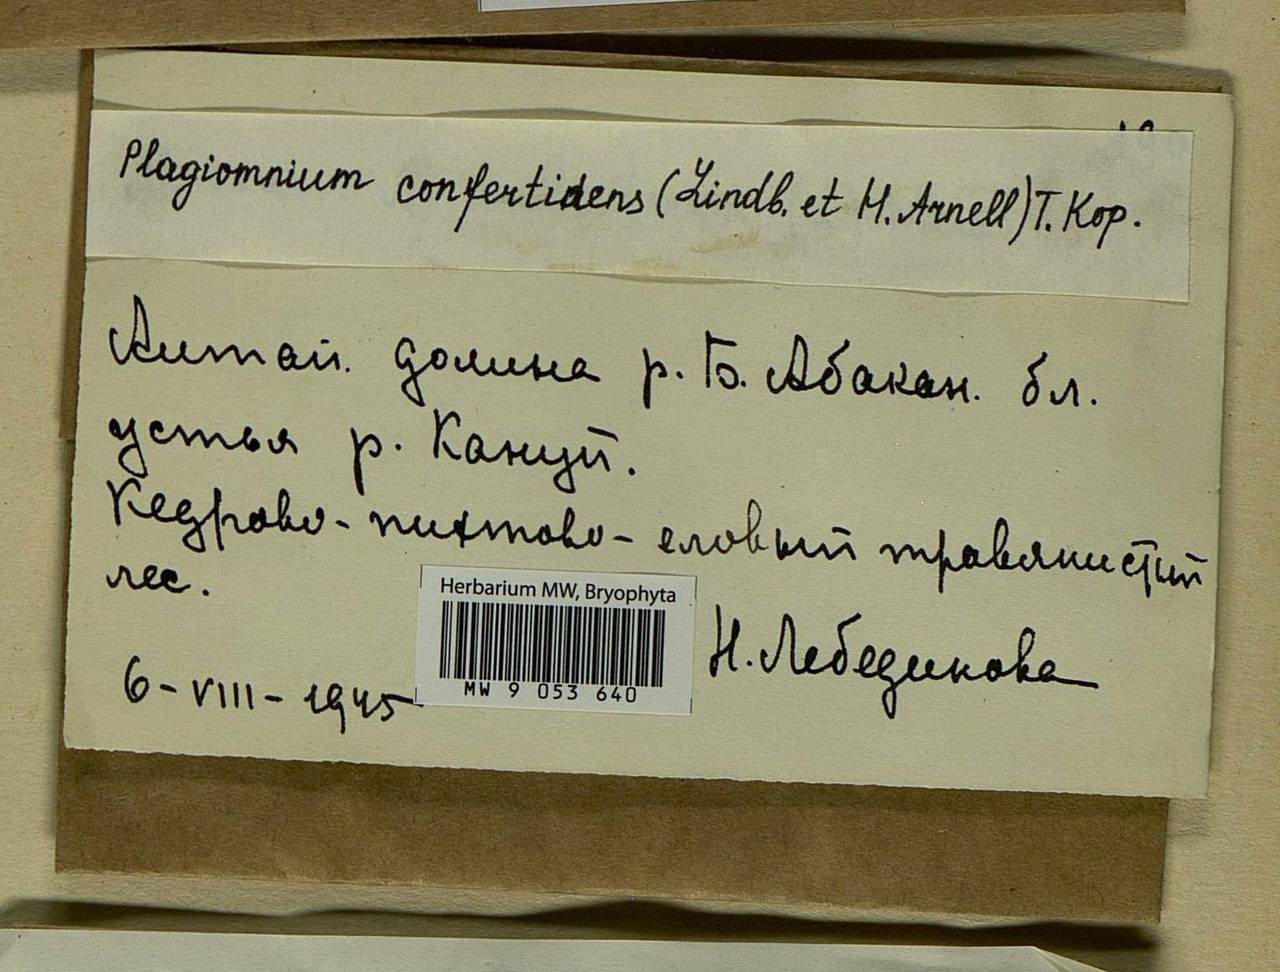 Plagiomnium confertidens (Lindb. et H. Arnell) T. Kop.
Алтай. долина р. Б. Абакан. бл.
устья р. Кануй.
Кедрово-пихтово-еловый травянистый
лес.
Herbarium MW, Bryophyta
MW 9 053 640
Н. Лебедикова
6-VIII-1945